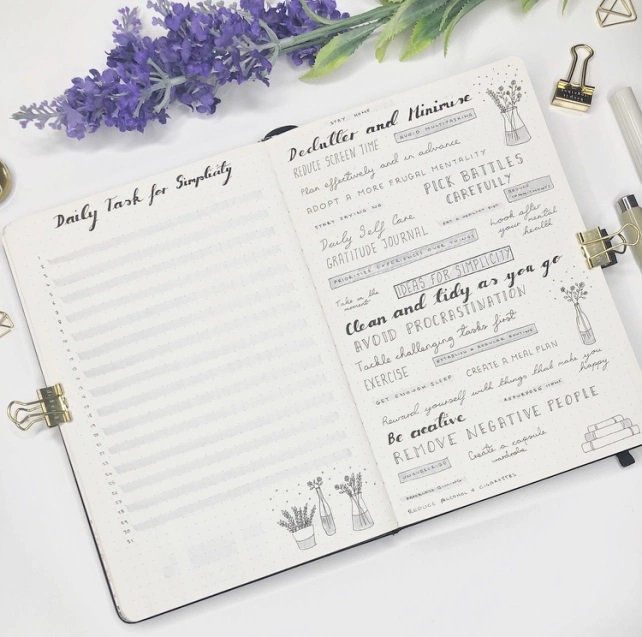 Daily Task for Simplicity
STAY HOME
Declutter and Minimise
REDUCE SCREEN TIME
AVOID MULTITASKING
Plan effectively and in advance
ADOPT A MORE FRUGAL MENTALITY
PICK BATTLES
CAREFULLY
START SAYING NO
REDUCE
Daily Self Care
Look after
your mental
health
GRATITUDE JOURNAL
Take in the
moment
IDEAS FOR SIMPLICITY
Clean and tidy as you go
AVOID PROCRASTINATION
Tackle challenging tasks first
ESTABLISH A MORNING ROUTINE
EXERCISE
GET ENOUGH SLEEP
CREATE A MEAL PLAN
Reward yourself with things that make you
happy
REPURPOSE MORE
Be creative
REMOVE NEGATIVE PEOPLE
UNSUBSCRIBE
Create a capsule
wardrobe
REDUCE ALCOHOL & CIGARETTES